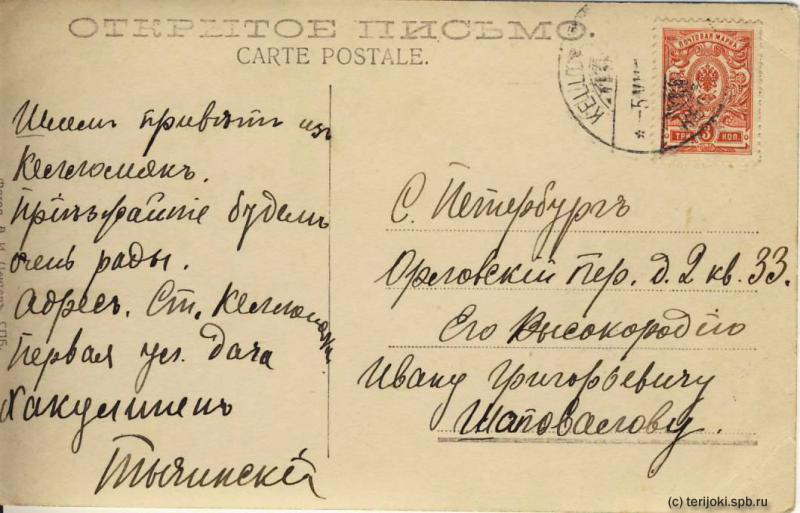 ОТКРЫТОЕ ПИСЬМО.
CARTE POSTALE.
Шлемъ привѣтъ изъ
Келломякъ.
Пріѣзжайте будемъ
очень рады.
Адресъ. Ст. Келломяки
Первая ул. дача
Хакулиненъ
Тычинскій
ПОЧТОВАЯ МАРКА
ТРИ 3 КОП.
KELLO
С. Петербургъ
Орловскій пер. д. 2 кв. 33.
Его Высокородію
Ивану Григорьевичу
Шаповалову.
(c) terijoki.spb.ru